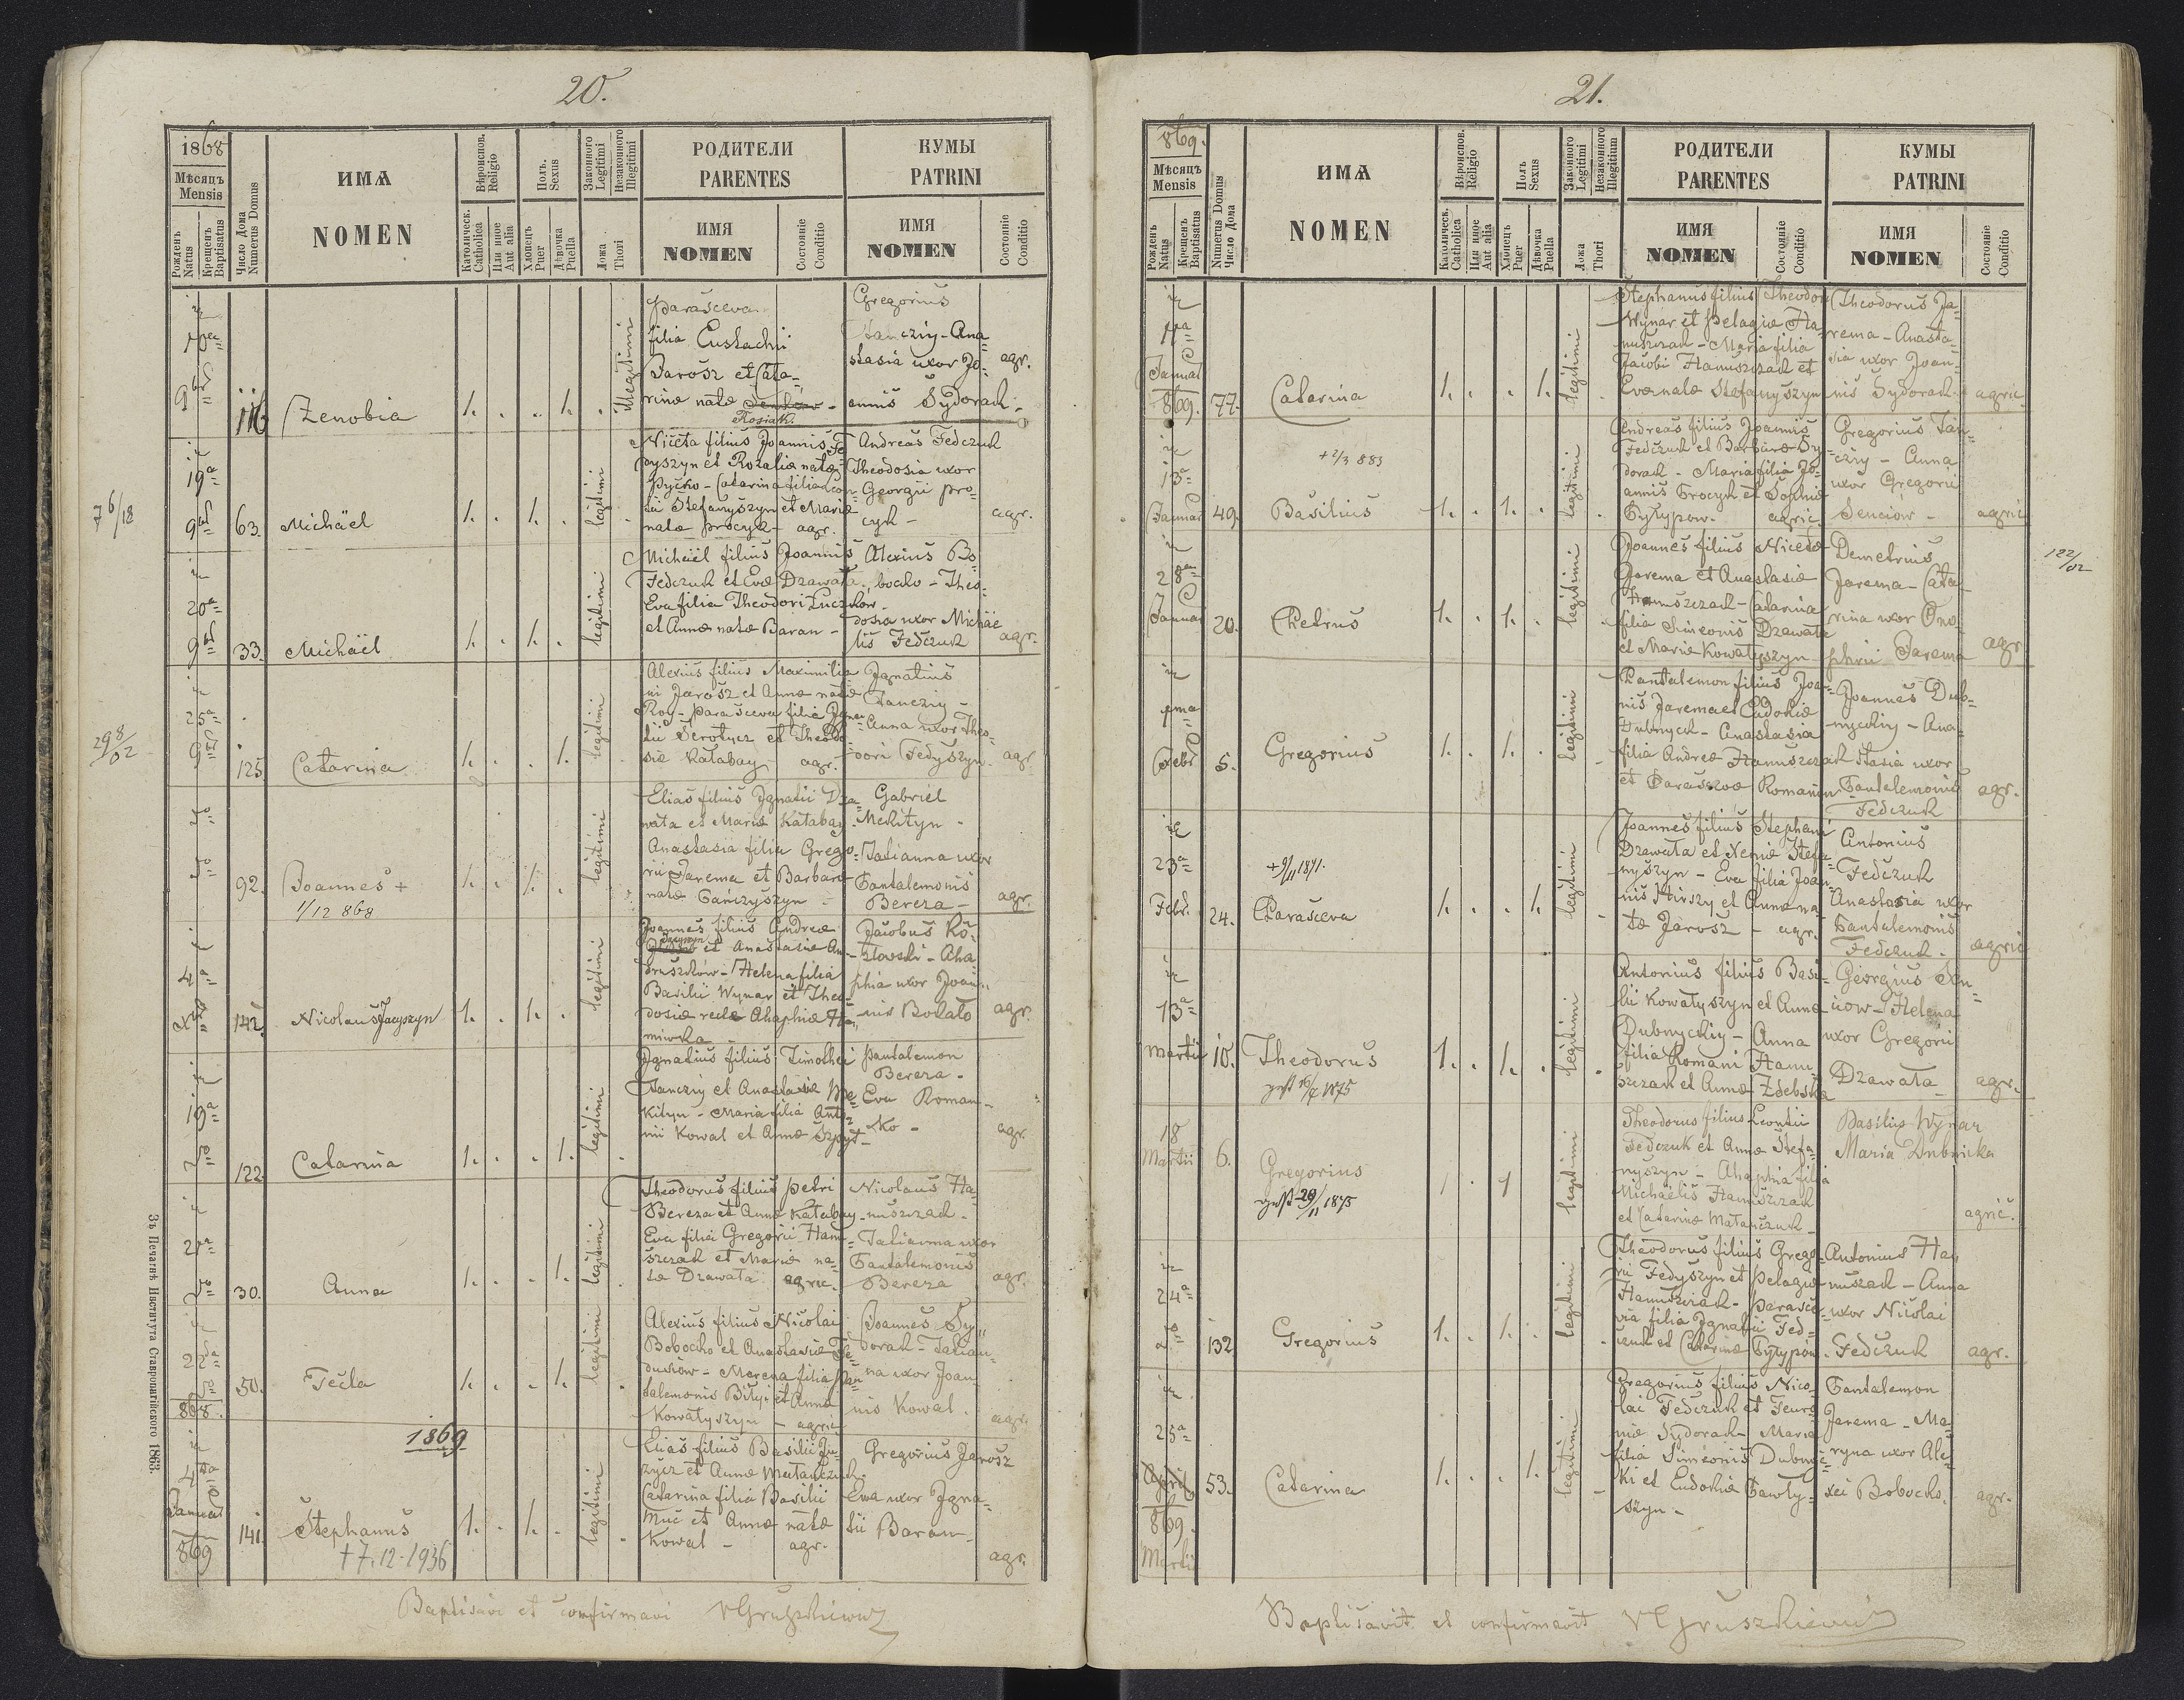 20.
1868
Мѣсяцъ
Mensis
Рожденъ
Natus
Крещенъ
Baptisatus
Число Дома
Numerus Domus
ИМѦ
NOMEN
Вѣроиспов.
Religio
Католическ.
Catholica
Или иное
Aut alia
Полъ.
Sexus
Хлопецъ
Puer
Дѣвочка
Puella
Законного
Legitimi
Незаконного
Illegitimi
Ложа
Thori
РОДИТЕЛИ
PARENTES
ИМЯ
NOMEN
Состояніе
Conditio
КУМЫ
PATRINI
ИМЯ
NOMEN
Состояніе
Conditio
116
Zenobia
1. . . 1. .
Illegitimi
Parasceva
filia Eustachii
Jarosz et Cata-
rinæ natæ
Kosiak.
Gregorius
Tancziy - Ana-
stasia uxor Jo-
annis Sydorach.
agr.
7 6/18
19a
9bris
63.
Michäel
1. . 1. .
legitimi
Niceta filius Joannis Fe
dyszyn et Rozaliæ natæ
Pyćko - Catarina filia Leon-
tii Stefanyszyn et Mariæ
natæ Procyk - agr.
Andreas Fedczuk
Theodosia uxor
Georgii Pro-
cyk -
agr.
20a
9bris
33.
Michäel
1. . 1. .
legitimi
Michäel filius Joannis
Fedczuk et Evæ Dzawata
Eva filia Theodori Luczkow
et Annæ natæ Baran -
Alexius Bo-
bocko - Theo-
dosia uxor Michäe
lis Fedczuk
agr.
298/02
25a
9bris
125.
Catarina
1. . . 1.
legitimi
Alexius filius Maximilia
ni Jarosz et Annæ natæ
Roy - Parasceva filia Igna-
tii Serotycz et Theodo
siæ Katabay - agr.
Ignatius
Tancziy -
Anna uxor Theo-
dori Fedyszyn.
agr.
92.
Joannes +
1/12 868
1. . 1. .
legitimi
Elias filius Ignatii Dza-
wata et Mariæ Katabay.
Anastasia filia Grego-
rii Jarema et Barbaræ
natæ Panczyszyn -
Gabriel
Mekityn -
Tatianna uxor
Pantalemonis
Bereza -
agr.
4a
142.
Nicolaus Jacyszyn
1. . 1. .
legitimi
Joannes filius Andreæ
Jacyszyn et Anastasiæ An-
druszków - Helena filia
Basilii Wynar et Theo-
dosiæ recte Ahaphiæ Ho-
miwka -
Jacobus Ko-
złowski - Aha
phia uxor Joan-
nis Bokato
agr.
19a
122.
Catarina
1. . . 1.
legitimi
Ignatius filius Timothei
TanczIy et Anastasiæ Me-
kityn - Maria filia Anto-
nii Kowal et Annæ Szpyt-
Pantalemon
Bereza -
Eva Roman-
ko -
agr.
21a
30.
Anna
1. . . 1.
legitimi
Theodorus filius Petri
Bereza et Annæ Katabay
Eva filia Gregorii Hanu-
szczak et Mariæ na-
tæ Dzawata agric.
Nicolaus Ha-
nuszczak.
Tatianna uxor
Pantalemonis
Bereza
agr.
22a
868.
50.
Tecla
1. . . 1.
legitimi
Alexius filius Nicolai
Bobocko et Anastasiæ Fe-
duniow - Marena filia Pan
talemonis Bilyi et Annæ
Kowatyszyn - agric.
Joannes Sy-
dorak - Tatian-
na uxor Joan
nis Kowal.
agr.
1869
4ta
Januar
869
141.
Stephanus
+ 7.12.1936
1. . 1. .
legitimi
Elias filius Basilii Ju-
zycz et Annæ Matanczuk.
Catarina filia Basilii
Muc et Annæ natæ
Kowal - agr.
Gregorius Jarosz
Ewa uxor Igna-
tii Baran
agr.
Зъ Печатнѣ Института Ставропигійского 1863.
Baptisavi et confirmavi VGruszkiewicz
21.
869.
Мѣсяцъ
Mensis
Рожденъ
Natus
Крещенъ
Baptisatus
Numerus Domus
Число Дома
ИМѦ
NOMEN
Вѣроиспов.
Religio
Католическ.
Catholica
Или иное
Aut alia
Полъ
Sexus
Хлопецъ
Puer
Дѣвочка
Puella
Законного
Legitimi
Незаконного
Illegitimi
Ложа
Thori
РОДИТЕЛИ
PARENTES
ИМЯ
NOMEN
Состояніе
Conditio
КУМЫ
PATRINI
ИМЯ
NOMEN
Состояніе
Conditio
Januar
869.
77.
Catarina
1. . . 1.
legitimi
Stephanus filius Theodori
Wynar et Pelagiæ Ha-
nuszczak - Maria filia
Jacobi Hanuszczak et
Evæ natæ Stefanyszyn
Theodorus Ja-
rema - Anasta-
sia uxor Joan-
nis Sydorak.
agric.
13a
Januar
49.
+ 2/3 883
Basilius
1. . 1. .
legitimi
Andreas filius Joannis
Fedczuk et Barbaræ Sy-
dorak - Maria filia Jo-
annis Procyk et Sophiæ
Pylypow. agric.
Gregorius Tan-
cziy - Anna
uxor Gregorii
Senciow -
agric.
122/02
28a
Januar
20.
Petrus
1. . 1. .
legitimi
Joannes filius Nicetæ
Jarema et Anastasiæ
Hanuszczak - Catarina
filia Simeonis Dzawata
et Mariæ Kowatyszyn
Demetrius
Jarema - Cata
rina uxor Ono-
phrii Jarema
agr.
1ma
Febr.
5.
Gregorius
1. . 1. .
legitimi
Pantalemon filius Joan-
nis Jarema et Eudokiæ
Dubnyck - Anastasia
filia Andreæ Hanuszczak
et Parascevæ Romanyn
Joannes Dub-
nyckiy - Ana-
stasia uxor
Pantalemonis
Fedczuk
agr.
23a
Febr.
24.
+ 9/11 1871.
Parasceva
1. . . 1.
legitimi
Joannes filius Stephani
Dzawata et Xeniæ Stefa-
nyszyn - Eva filia Joan-
nis Hirszy et Annæ na-
tæ Jarosz - agr.
Antonius
Fedczuk
Anastasia uxor
Pantalemonis
Fedczuk.
agric.
13a
Martii
10.
Theodorus
1. . 1. .
legitimi
Antonius filius Basi-
lii Kowatyszyn et Annæ
Dubnyckiy - Anna
filia Romani Hanu-
szczak et Annæ Zdebska
Georgius Sen-
ciow - Helena
uxor Gregorii
Dzawata
agr.
18
Martii
6.
Gregorius
1 . 1
legitimi
Theodorus filius Leontii
Fedczuk et Annæ Stefa-
nyszyn - Ahaphia filia
Michaelis Hanuszczak
et Catarinæ Matanczuk
Basilius Wynar
Maria Dubnicka
agric.
24a
132.
Gregorius
1. . 1. .
legitimi
Theodorus filius Grego-
rii Fedyszyn et Pelagiæ
Hanuszczak - Parasce-
via filia Ignatii Fed-
czuk et Catarinæ Pylypow
Antonius Ha-
nuszak - Anna
uxor Nicolai
Fedczuk
agr.
25a
869.
Martii
53.
Catarina
1. . . 1.
legitimi
Gregorius filius Nico-
lai Fedczuk et Feuro-
niæ Sydorak - Maria
filia Simeonis Dubnic-
ki et Eudokiæ Pawly-
szyn -
Pantalemon
Jarema - Ma-
ryna uxor Ale-
xei Bobocko.
agr.
Baptisavit et confirmavit VGruszkiewicz